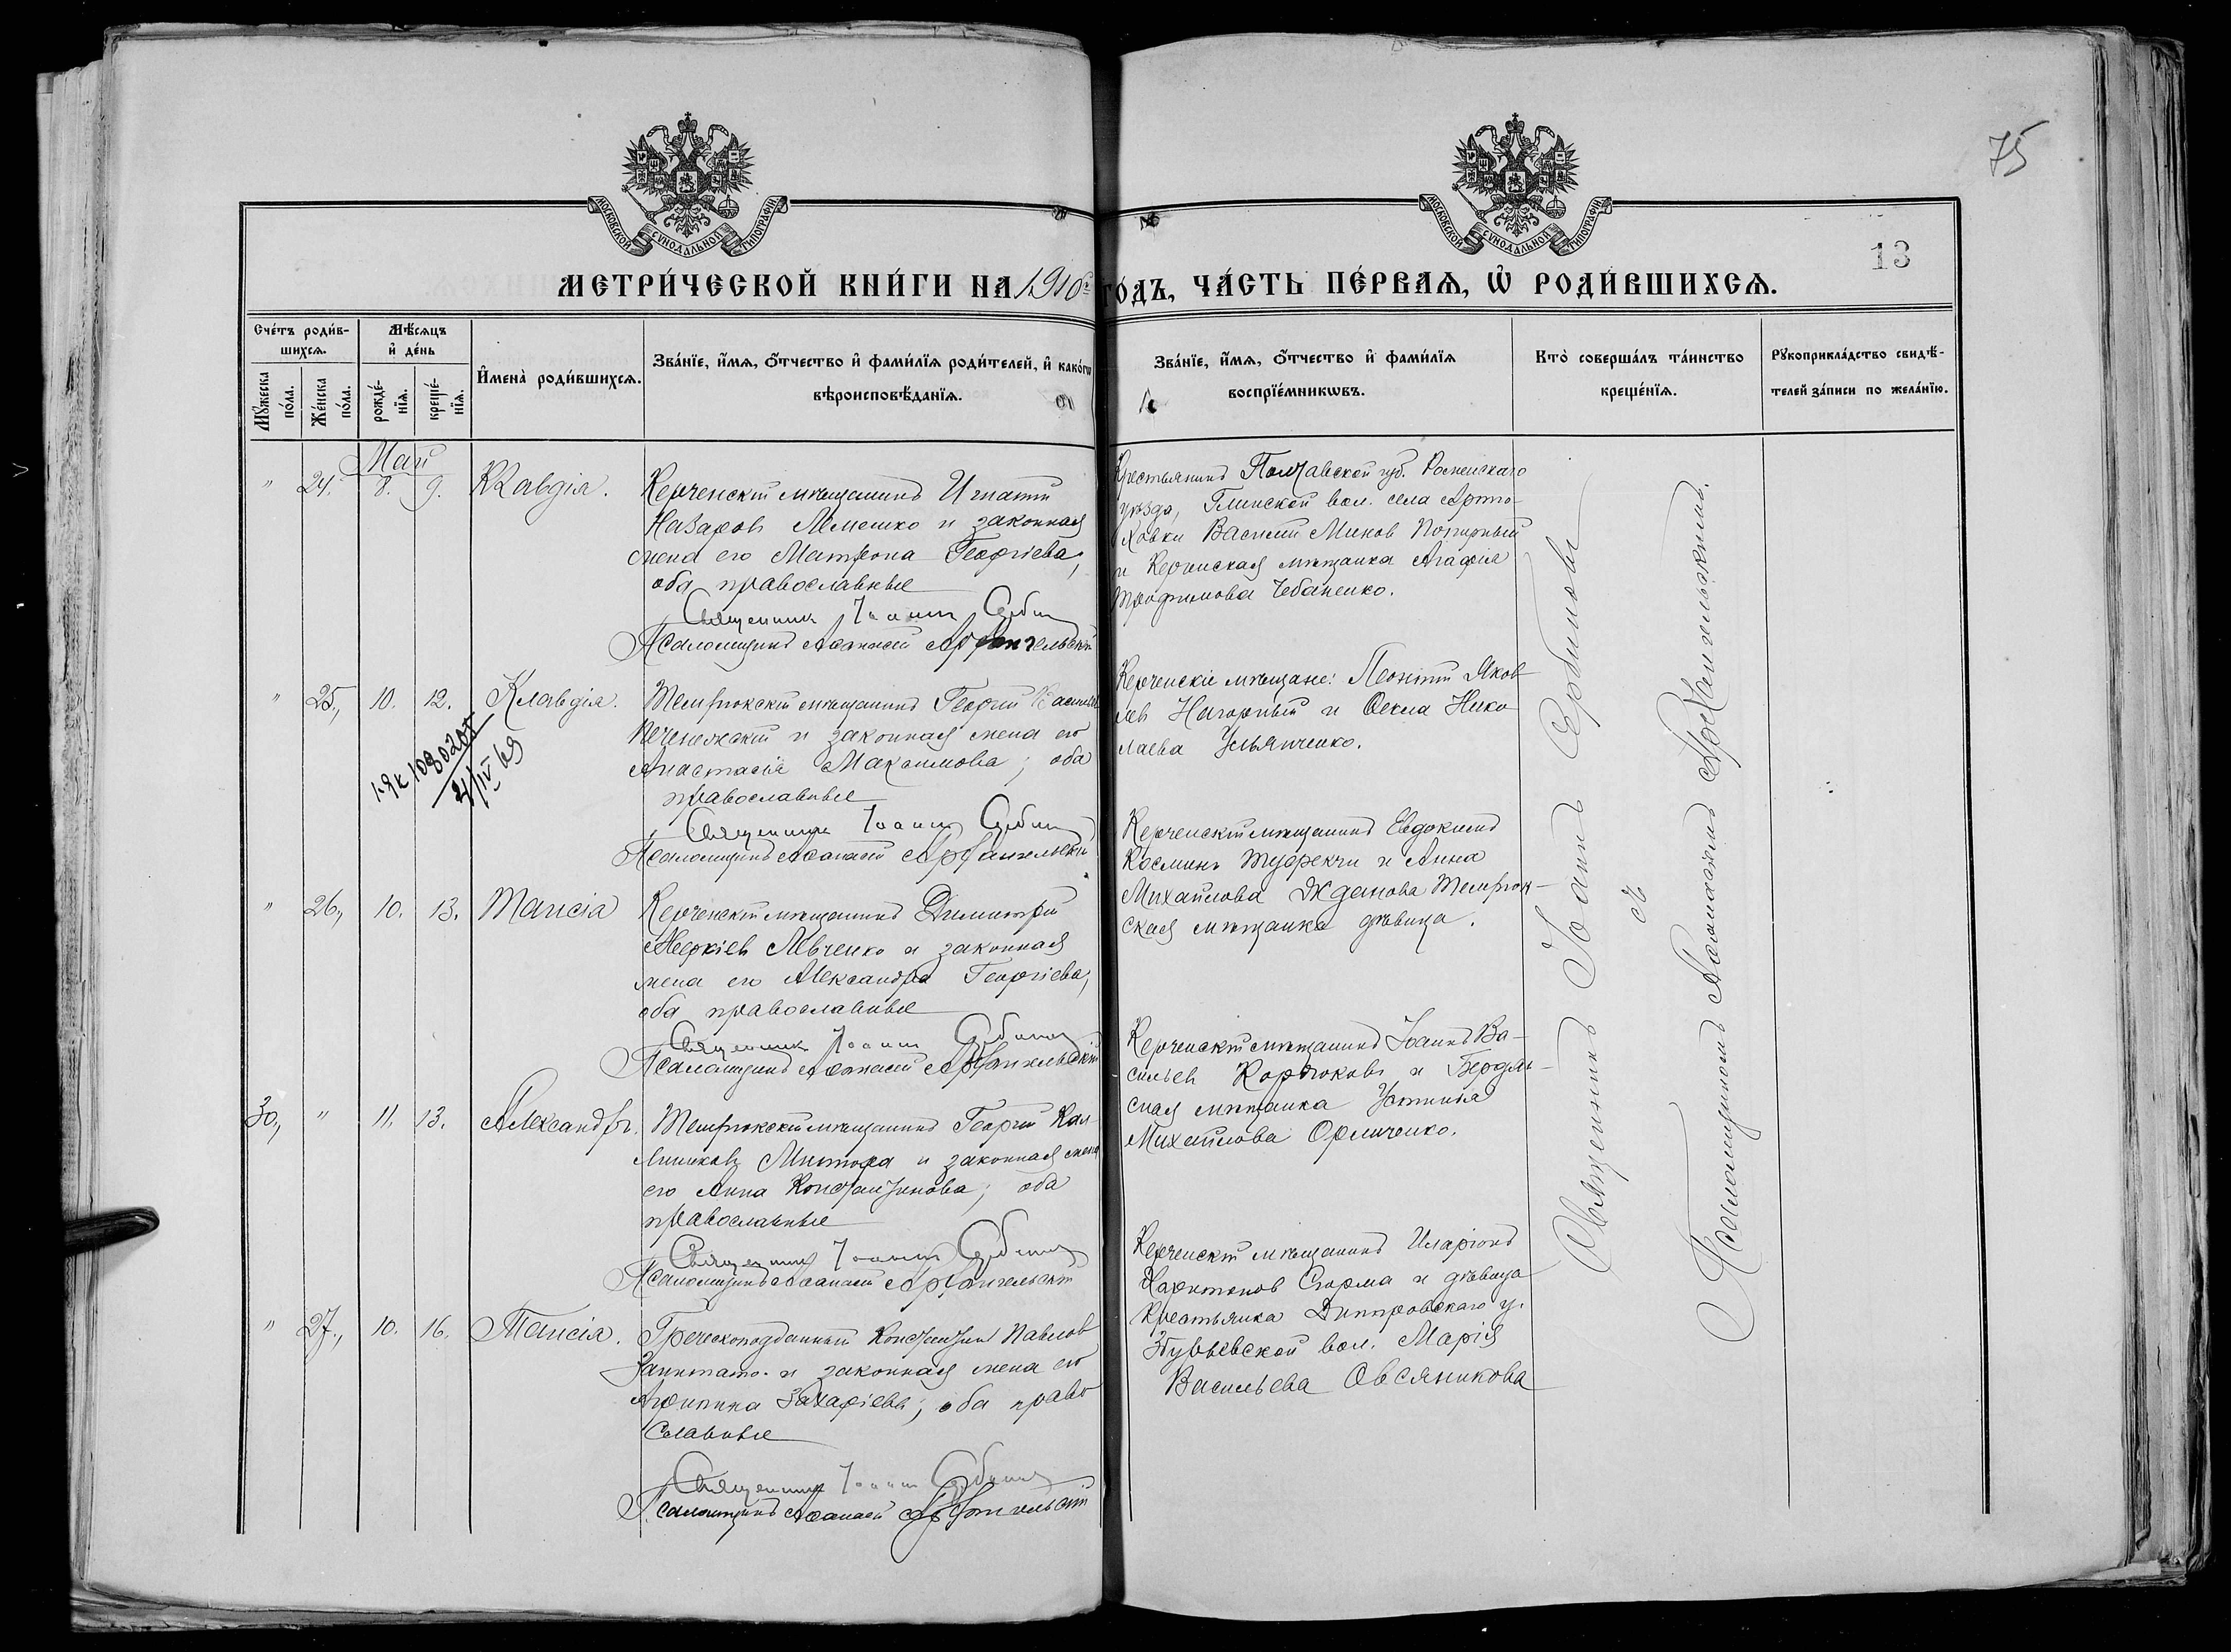 75
МОСКОВСКОЙ СУНОДАЛЬНОЙ ТИПОГРАФІИ
МОСКОВСКОЙ СУНОДАЛЬНОЙ ТИПОГРАФІИ
13
МЕТРИ́ЧЕСКОЙ КНИ́ГИ НА 1910 го́дъ, ЧА́СТЬ ПЕ́РВАѦ, Ѡ҆ РОДИ́ВШИХСѦ.
Сче́тъ роди́в-
шихсѧ.
Мꙋ́жеска по́ла.
Же́нска по́ла.
Мѣ́сѧцъ
и҆ де́нь
рожде́-
нїѧ.
креще́-
нїѧ.
И҆мена̀ роди́вшихсѧ.
Зва́нїе, и҆́мѧ, ѻ҆́тчество и҆ фами́лїѧ роди́телей, и҆ како́гѡ
вѣроисповѣ́данїѧ.
Зва́нїе, и҆́мѧ, ѻ҆́тчество и҆ фами́лїѧ
воспрїе́мникѡвъ.
Кто̀ соверша́лъ та́инство
креще́нїѧ.
Рꙋкоприкла́дство свидѣ́-
телей за́писи по жела́нїю.
Май
" 24. 8. 9. Клавдія.
Керченскій мѣщанинъ Игнатій
Назаровъ Лемешко и законная
жена его Матрона Георгіева,
оба православные
Священникъ Іоаннъ Сербиновъ
Псаломщикъ Аѳанасій Архангельскій
Крестьянинъ Полтавской губ. Роменскаго
уѣзда, Глинской вол. села Артю-
ховки Василій Миновъ Попирный
и Керченская мѣщанка Агафія
Трофимова Чебаненко.
" 25, 10. 12. Клавдія.
Темрюкскій мѣщанинъ Георгій Васильев
Печенежскій и законная жена его
Анастасія Максимова; оба
православные
Священникъ Іоаннъ Сербиновъ
Псаломщикъ Аѳанасій Архангельскій
1-ЯК 1080205
21/IV 69
Керченскіе мѣщане: Леонтій Яков-
левъ Нагорный и Ѳекла Нико-
лаева Ульянченко.
" 26, 10. 13. Таисія
Керченскій мѣщанинъ Димитрій
Аверкіевъ Левченко и законная
жена его Александра Георгіева,
оба православные
Священникъ Іоаннъ Сербиновъ
Псаломщикъ Аѳанасій Архангельскій
Керченскій мѣщанинъ Евдокимъ
Косминъ Туфекчи и Анна
Михайлова Жданова Темрюк-
ская мѣщанка дѣвица.
30, " 11. 13. Александръ.
Темрюкскій мѣщанинъ Георгій Кал-
линиковъ и законная жена
его Анна Константинова; оба
православные
Священникъ Іоаннъ Сербиновъ
Псаломщикъ Аѳанасій Архангельскій
Керченскій мѣщанинъ Іоаннъ Ва-
сильевъ и Бердян-
ская мѣщанка Устинія
Михайлова
" 27, 10. 16. Таисія.
Греческоподданный Константинъ Павлов
и законная жена его
Захаріева; оба право-
славные
Священникъ Іоаннъ Сербиновъ
Псаломщикъ Аѳанасій Архангельскій
Керченскій мѣщанинъ Иларіонъ
Харитоновъ и дѣвица
Крестьянка Дмитровскаго у.
вол. Марія
Васильева Овсяникова
Священникъ Іоаннъ Сербиновъ
съ
Псаломщикомъ Аѳанасіемъ Архангельскимъ.